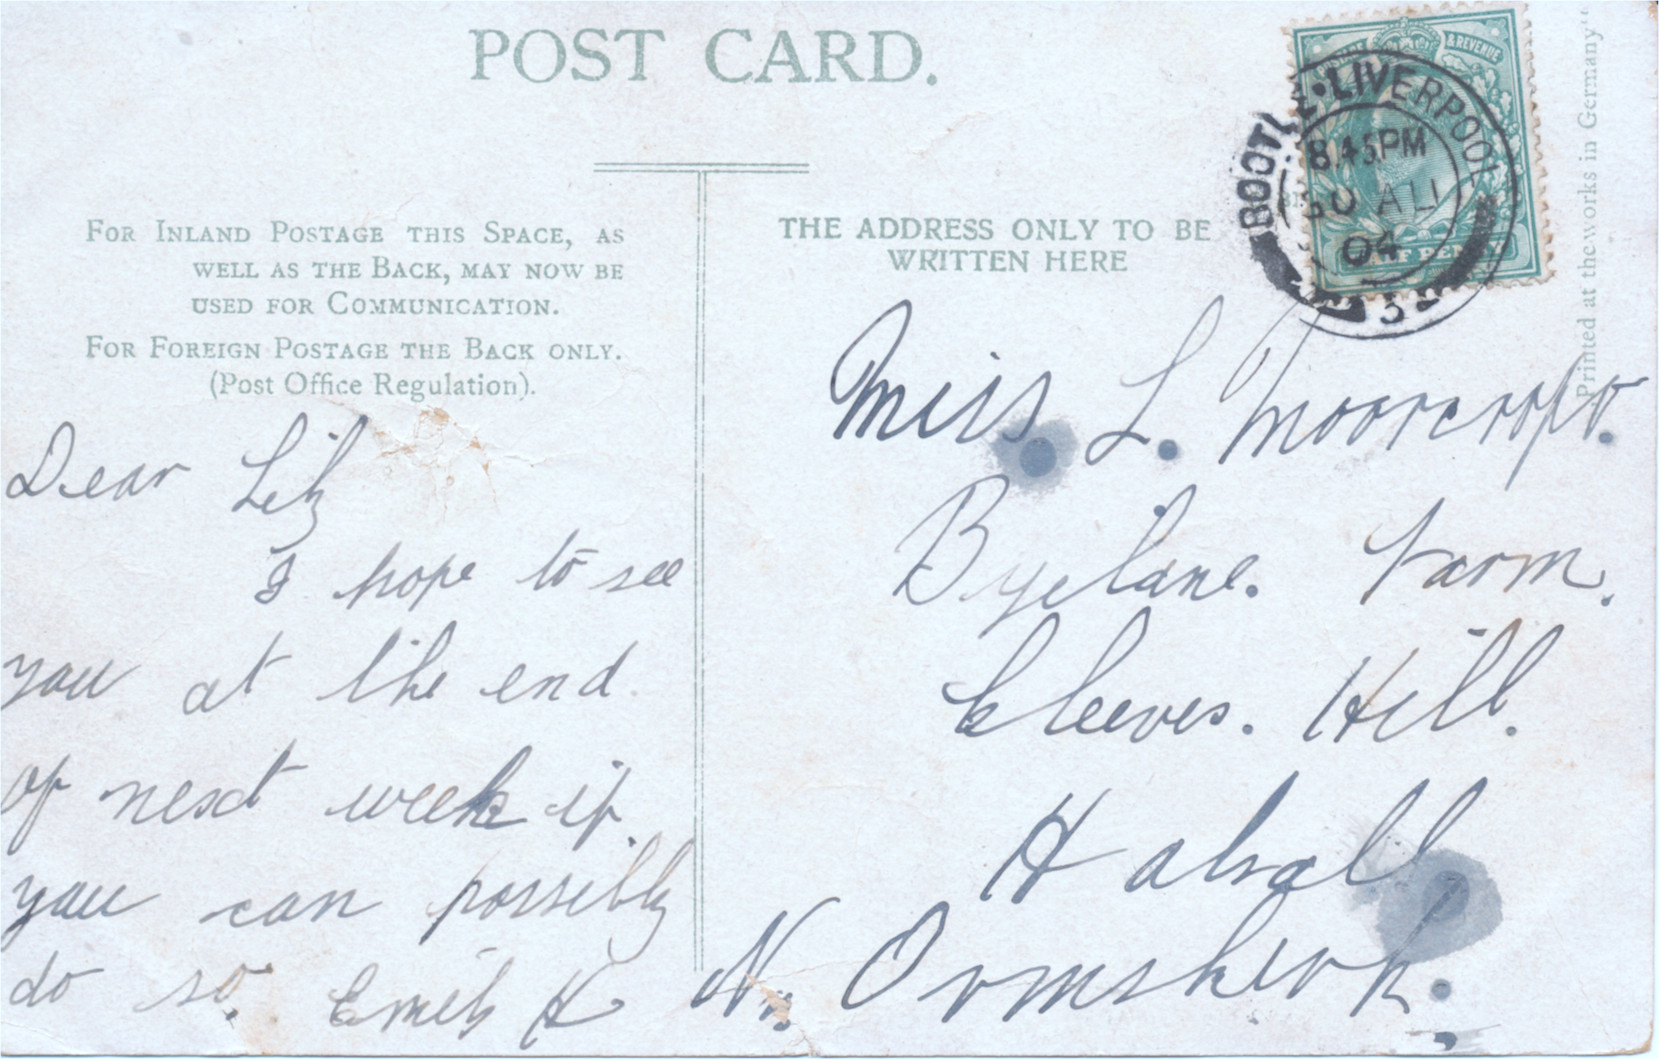 POST CARD.
& REVENUE
BOOTLE · LIVERPOOL
8.45PM
30 AU
04
3
HALF PENNY
Printed at the works in Germany"
FOR INLAND POSTAGE THIS SPACE, AS
WELL AS THE BACK, MAY NOW BE
USED FOR COMMUNICATION.
FOR FOREIGN POSTAGE THE BACK ONLY.
(Post Office Regulation).
THE ADDRESS ONLY TO BE
WRITTEN HERE
Dear Liz
I hope to see
you at the end
of next week if
you can possibly
do so. Emily H
Miss L. Moorcroft.
Byelane. Farm.
Cleeves. Hill.
Halsall
Nr. Ormskirk.